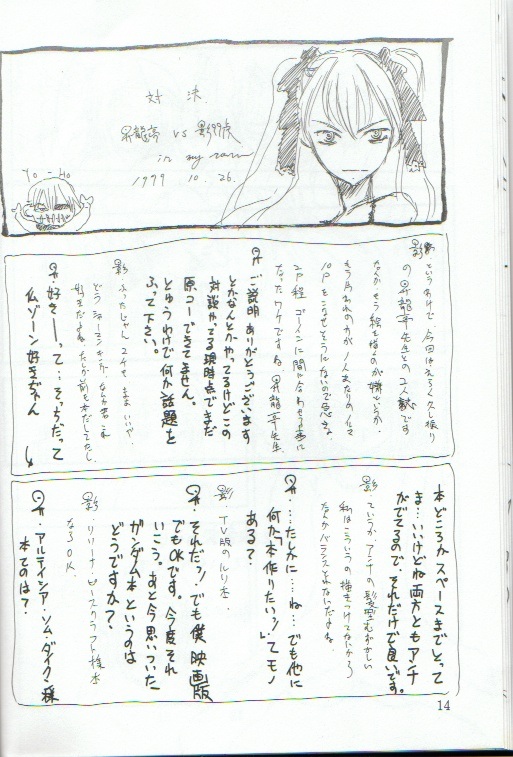 対決
昇龍亭 VS 影99虎
in my room
1999 10. 26.
Yo-Ho
影 というわけで、今回はえらく久し振り
の昇龍亭先生との2人誌です
なんか、もう絵を描くのが嫌というか
もう月われの力が1人あたりのノルマ
10Pをこなせそうにないので急きょ
2P程ゴーインに間に合わせる事に
なったワケですね 昇龍亭先生
昇 ご説明ありがとうございます
とかなんとかやってるけどこの
対談やってる現時点でまだ
原コーできてません。
とゆうわけで何か話題を
ふって下さい。
影 ふったじゃん 2人でも まぁいいや。
どう シャーマンキングなら君これ
好きだよね たしか前も本だしてたし
昇 好きーって…そっちだって
仏ゾーン好きぢゃん
本どころかスペースまでとって
ま…いいけどね両方ともアンナ
がでてるので、それだけで良いです。
影 ていうか アンナの髪型むずかしい
私はこういうの描きつけてないから
なんかバランスとれないんだよね。
昇 …たしかに…ね…でも他に
何か「本作りたいっ!」てモノ
ある?
影・TV版のルリ本・
昇・それだっ!でも僕、映画版
でもOKです。今度それ
いこう。あと今思いついた
ガンダム本というのは
どうですか?
影・リリーナ・ピースクラフト様本
ならOK.
昇・アルテイシア・ソム・ダイクン様
本てのは?
14